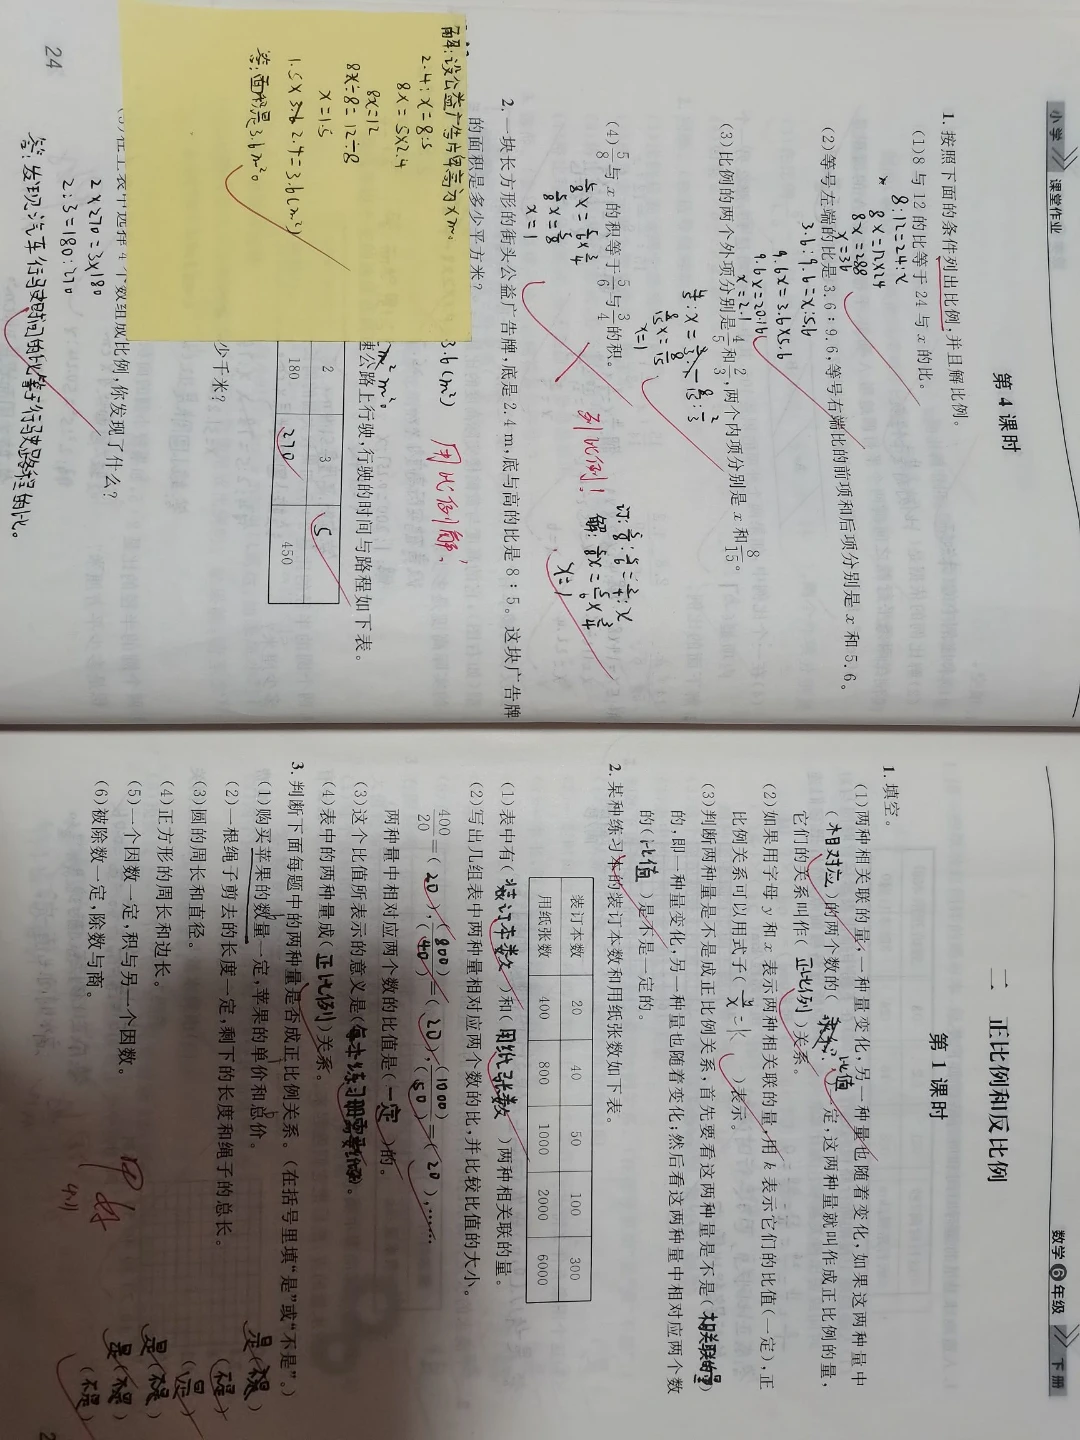 小学 课堂作业
第4课时
1. 按照下面的条件列出比例,并且解比例。
(1)8与12的比等于24与x的比。
8:12=24:x
8x=12×24
8x=288
x=36
(2)等号左端的比是3.6:9.6,等号右端比的前项和后项分别是x和5.6。
3.6:9.6=x:5.6
9.6x=3.6×5.6
9.6x=20.16
x=2.1
(3)比例的两个外项分别是4/5和2/3,两个内项分别是x和8/15。
x=1
(4)5/8与x的积等于5/6与3/4的积。
5/8x=5/6×3/4
5/8x=5/8
x=1
列比例!
订:5/8:5/6=3/4:x
解:5/8x=5/6×3/4
x=1
2. 一块长方形的街头公益广告牌,底是2.4 m,底与高的比是8:5。这块广告牌
的面积是多少平方米?
解:设公益广告牌高为xm。
2.4:x=8:5
8x=5×2.4
8x=12
8x÷8=12÷8
x=1.5
1.5×2.4=3.6(m²)
答:面积是3.6m²。
3.6(m²)
用比例解!
速公路上行驶,行驶的时间与路程如下表。
2 3 5
180 270 450
少千米?
个数组成比例,你发现了什么?
2×270=3×180
2:3=180:270
答:发现汽车行驶时间的比等于行驶路程的比。
24
数学6年级 下册
二 正比例和反比例
第1课时
1. 填空。
(1)两种相关联的量,一种量变化,另一种量也随着变化,如果这两种量中
(相对应)的两个数的(比值)一定,这两种量就叫作成正比例的量,
它们的关系叫作(正比例)关系。
(2)如果用字母y和x表示两种相关联的量,用k表示它们的比值(一定),正
比例关系可以用式子(y/x=k)表示。
(3)判断两种量是不是成正比例关系,首先要看这两种量是不是(相关联的量)
的,即一种量变化,另一种量也随着变化;然后看这两种量中相对应两个数
的(比值)是不是一定的。
2. 某种练习本的装订本数和用纸张数如下表。
装订本数 20 40 50 100 300
用纸张数 400 800 1000 2000 6000
(1)表中有(装订本数)和(用纸张数)两种相关联的量。
(2)写出几组表中两种量相对应两个数的比,并比较比值的大小。
400/20=(20),(800)/(40)=(20),(1000)/(50)=(20),……
两种量中相对应两个数的比值是(一定)的。
(3)这个比值所表示的意义是(每本练习册需要纸张)。
(4)表中的两种量成(正比例)关系。
3. 判断下面每题中的两种量是否成正比例关系。(在括号里填“是”或“不是”。)
(1)购买苹果的数量一定,苹果的单价和总价。 是
(2)一根绳子剪去的长度一定,剩下的长度和绳子的总长。 (不是)
(3)圆的周长和直径。 (是)
(4)正方形的周长和边长。 是
(5)一个因数一定,积与另一个因数。 是
(6)被除数一定,除数与商。 (不是)